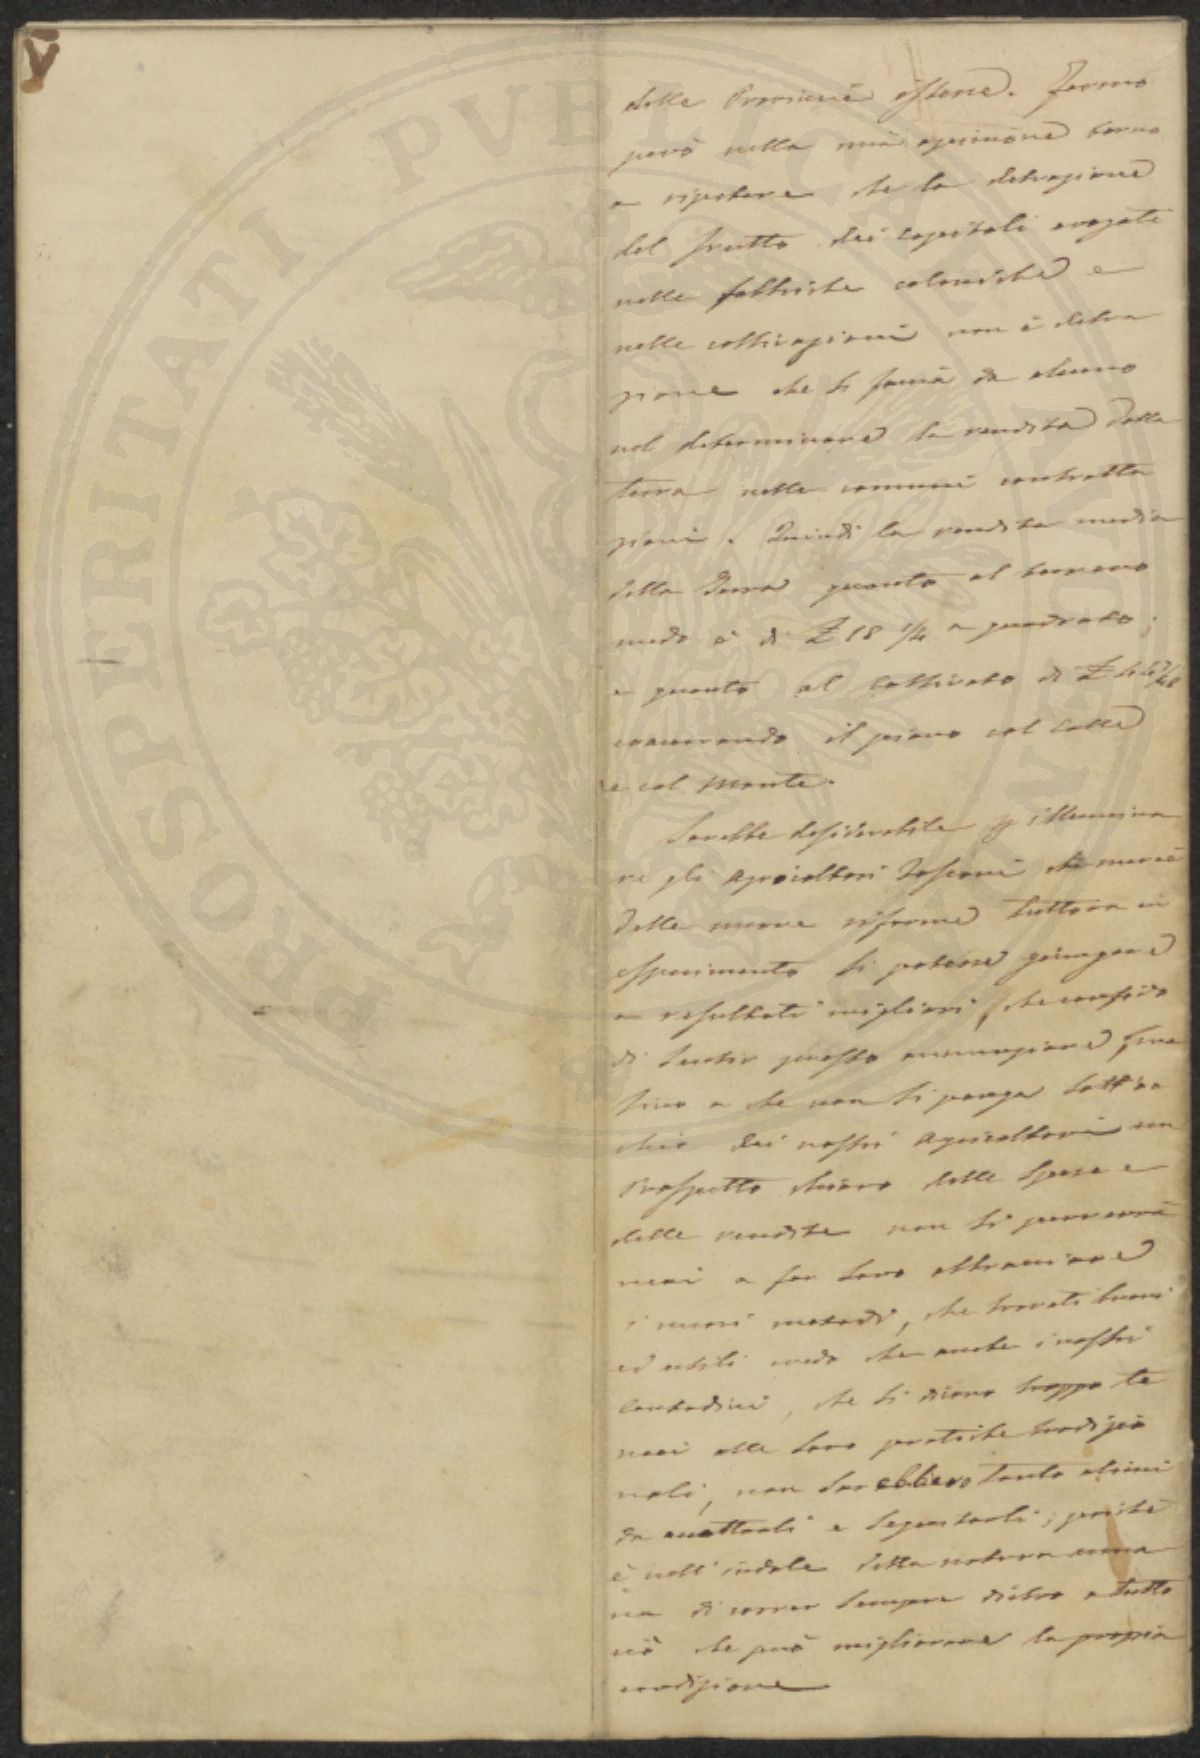 delle Provincie estere. Fermo
però nella mia opinione torno
a ripetere che la detrazione
del frutto dei capitali erogati
nelle fabbriche coloniche e
nelle coltivazioni non è detra
zione che si faccia da alcuno
nel determinare la rendita della
terra nelle comuni contratta
zioni. Quindi la rendita media
della Terra quanto al terreno
nudo è di £ 18 1/4 a quadrato;
e quanto al coltivato di £
concorrendo il piano col Colle
e col Monte.
Sarebbe desiderabile p illumina
re gli Agricoltori Toscani che mercè
delle nuove riforme tuttora in
esperimento si potesse giungere
a resultati migliori, che confido
di sentir presto annunziare,
sino a che non si ponga sott'oc
chio dei nostri Agricoltori un
Prospetto chiaro delle spese e
delle rendite non si perverrà
mai a far loro abbracciare
i nuovi metodi, che trovati buoni
ed utili credo che anche i nostri
Contadini, che si dicono troppo te
naci alle loro pratiche tradizio
nali, non sarebbero tanto alieni
da accettarli e seguitarli; poichè
è nell'indole della natura uma
na di correr sempre dietro a tutto
ciò che può migliorare la propria
condizione
PROSPERITATI PVBLICAE AVGENDAE